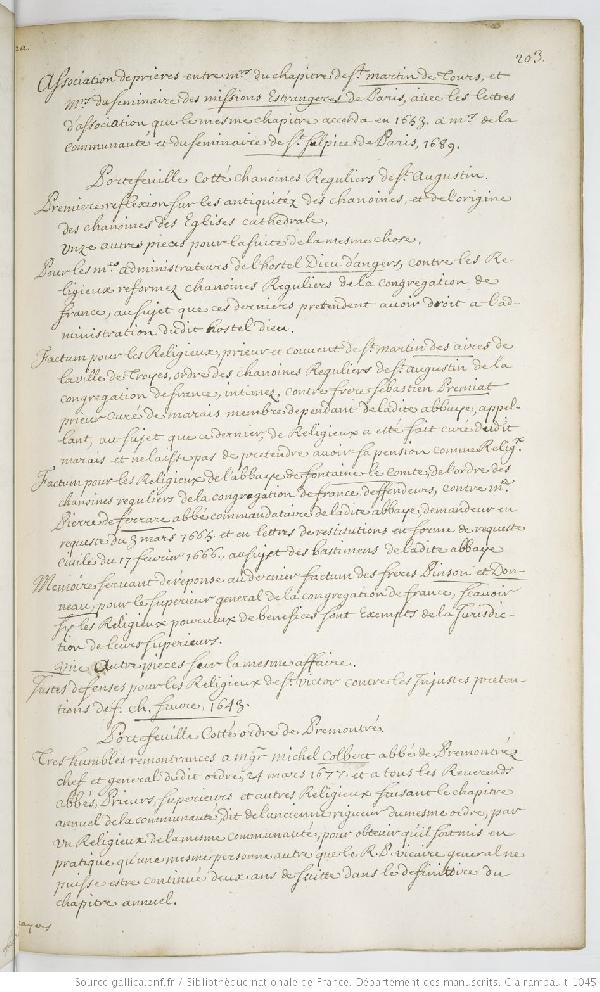 203.
Association de prieres entre mrs du chapitre de St martin de Tours, et
mrs du seminaire des missions Estrangeres de Paris, avec les lettres
d'association que le mesme chapitre accorda en 1653 a mrs de la
communauté et du seminaire de St sulpice de Paris, 1689.
Portefeuille Cotté Chanoines Reguliers de St Augustin.
Premiere reflexion sur les antiquitez des chanoines, et de l'origine
des chanoines des Eglises cathedrale,
Unze autres pieces pour la suite de la mesme chose,
Pour les mrs administrateurs de l'hostel Dieu d'angers, contre les Re-
ligieux reformez chanoines Reguliers de la Congregation de
france, au sujet que ces derniers pretendent avoir droit a l'ad-
ministration dudit hostel dieu.
Factum pour les Religieux, prieur et couvent de St martin des aires de
la ville de Troyes, ordre des chanoines Reguliers de St augustin de la
congregation de france, intimez, contre frere sebastien Premiat
prieur curé de marais membre dependant de ladite abbaye, appel-
lant, au sujet que ce dernier, de Religieux a esté fait curé dudit
marais et ne laisse pas de pretendre avoir sa pension comme Religx.
Factum pour les Religieux de l'abbaye de fontaine le comte, de l'ordre des
chanoines reguliers de la congregation de france, deffendeurs, contre mre
Pierre de ferrare abbé commandataire de ladite abbaye, demandeur en
requeste du 3 mars 1665 et en lettres de restitutions en forme de requeste
Civile du 17 fevrier 1666, au sujet des bastimens de ladite abbaye
Memoire servant de reponse au dernier factum des freres Pinson et Don-
neau, pour le superieur general de la congregation de france, scavoir
sy les Religieux pourveux de benefices sont Exempts de la Jurisdic-
tion de leurs superieurs.
Une Autre pieces sur la mesme affaire.
Justes defenses pour les Religieux de St victor contre les Injustes preten-
tions de f. ch. faure, 1643.
Portefeuille Cotté ordre de Premontré
Tres humbles remontrances a mgr michel Colbert abbé de Premontré
chef et general dudit ordre, 24 mars 1677. et a tous les Reverends
abbés, Prieurs, superieurs et autres Religieux faisant le chapitre
annuel de la communauté dit de l'ancienne rigueur du mesme ordre, par
un Religieux de la mesme communauté, pour obtenir qu'il soit mis en
pratique qu'une mesme personne autre que le R. P. vicaire general ne
puisse estre continué deux ans de suitte dans le definitoire du
chapitre annuel.
Source gallica.bnf.fr / Bibliothèque nationale de France. Département des manuscrits. Clairambault 1045